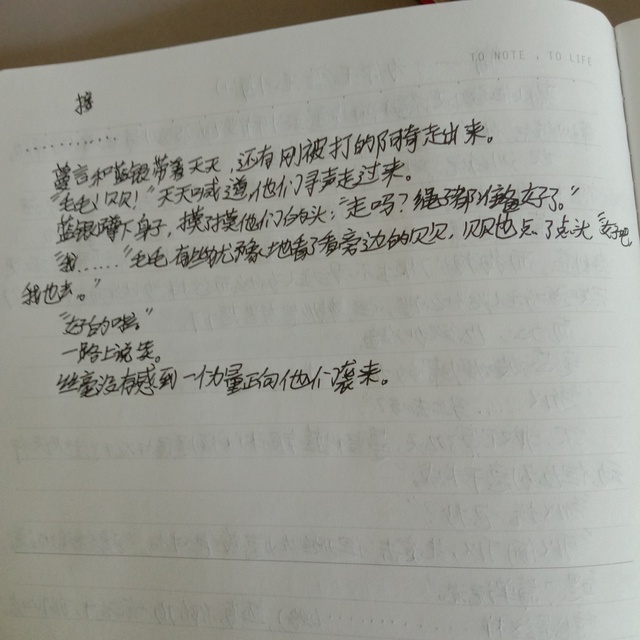 TO NOTE , TO LIFE
接
…………
蓝言和蓝银带着天天，还有刚被打的阿奇走出来。
“毛毛！贝贝！”天天喊道，他们寻声走过来。
蓝银蹲下身子，摸了摸他们的头：“走吗？绳子都准备好了。”
“我……”毛毛有些犹豫地看了看旁边的贝贝，贝贝也点了点头“好吧
我也去。”
“好的啦。”
一路上说笑。
丝毫没有感到一个力量正向他们袭来。